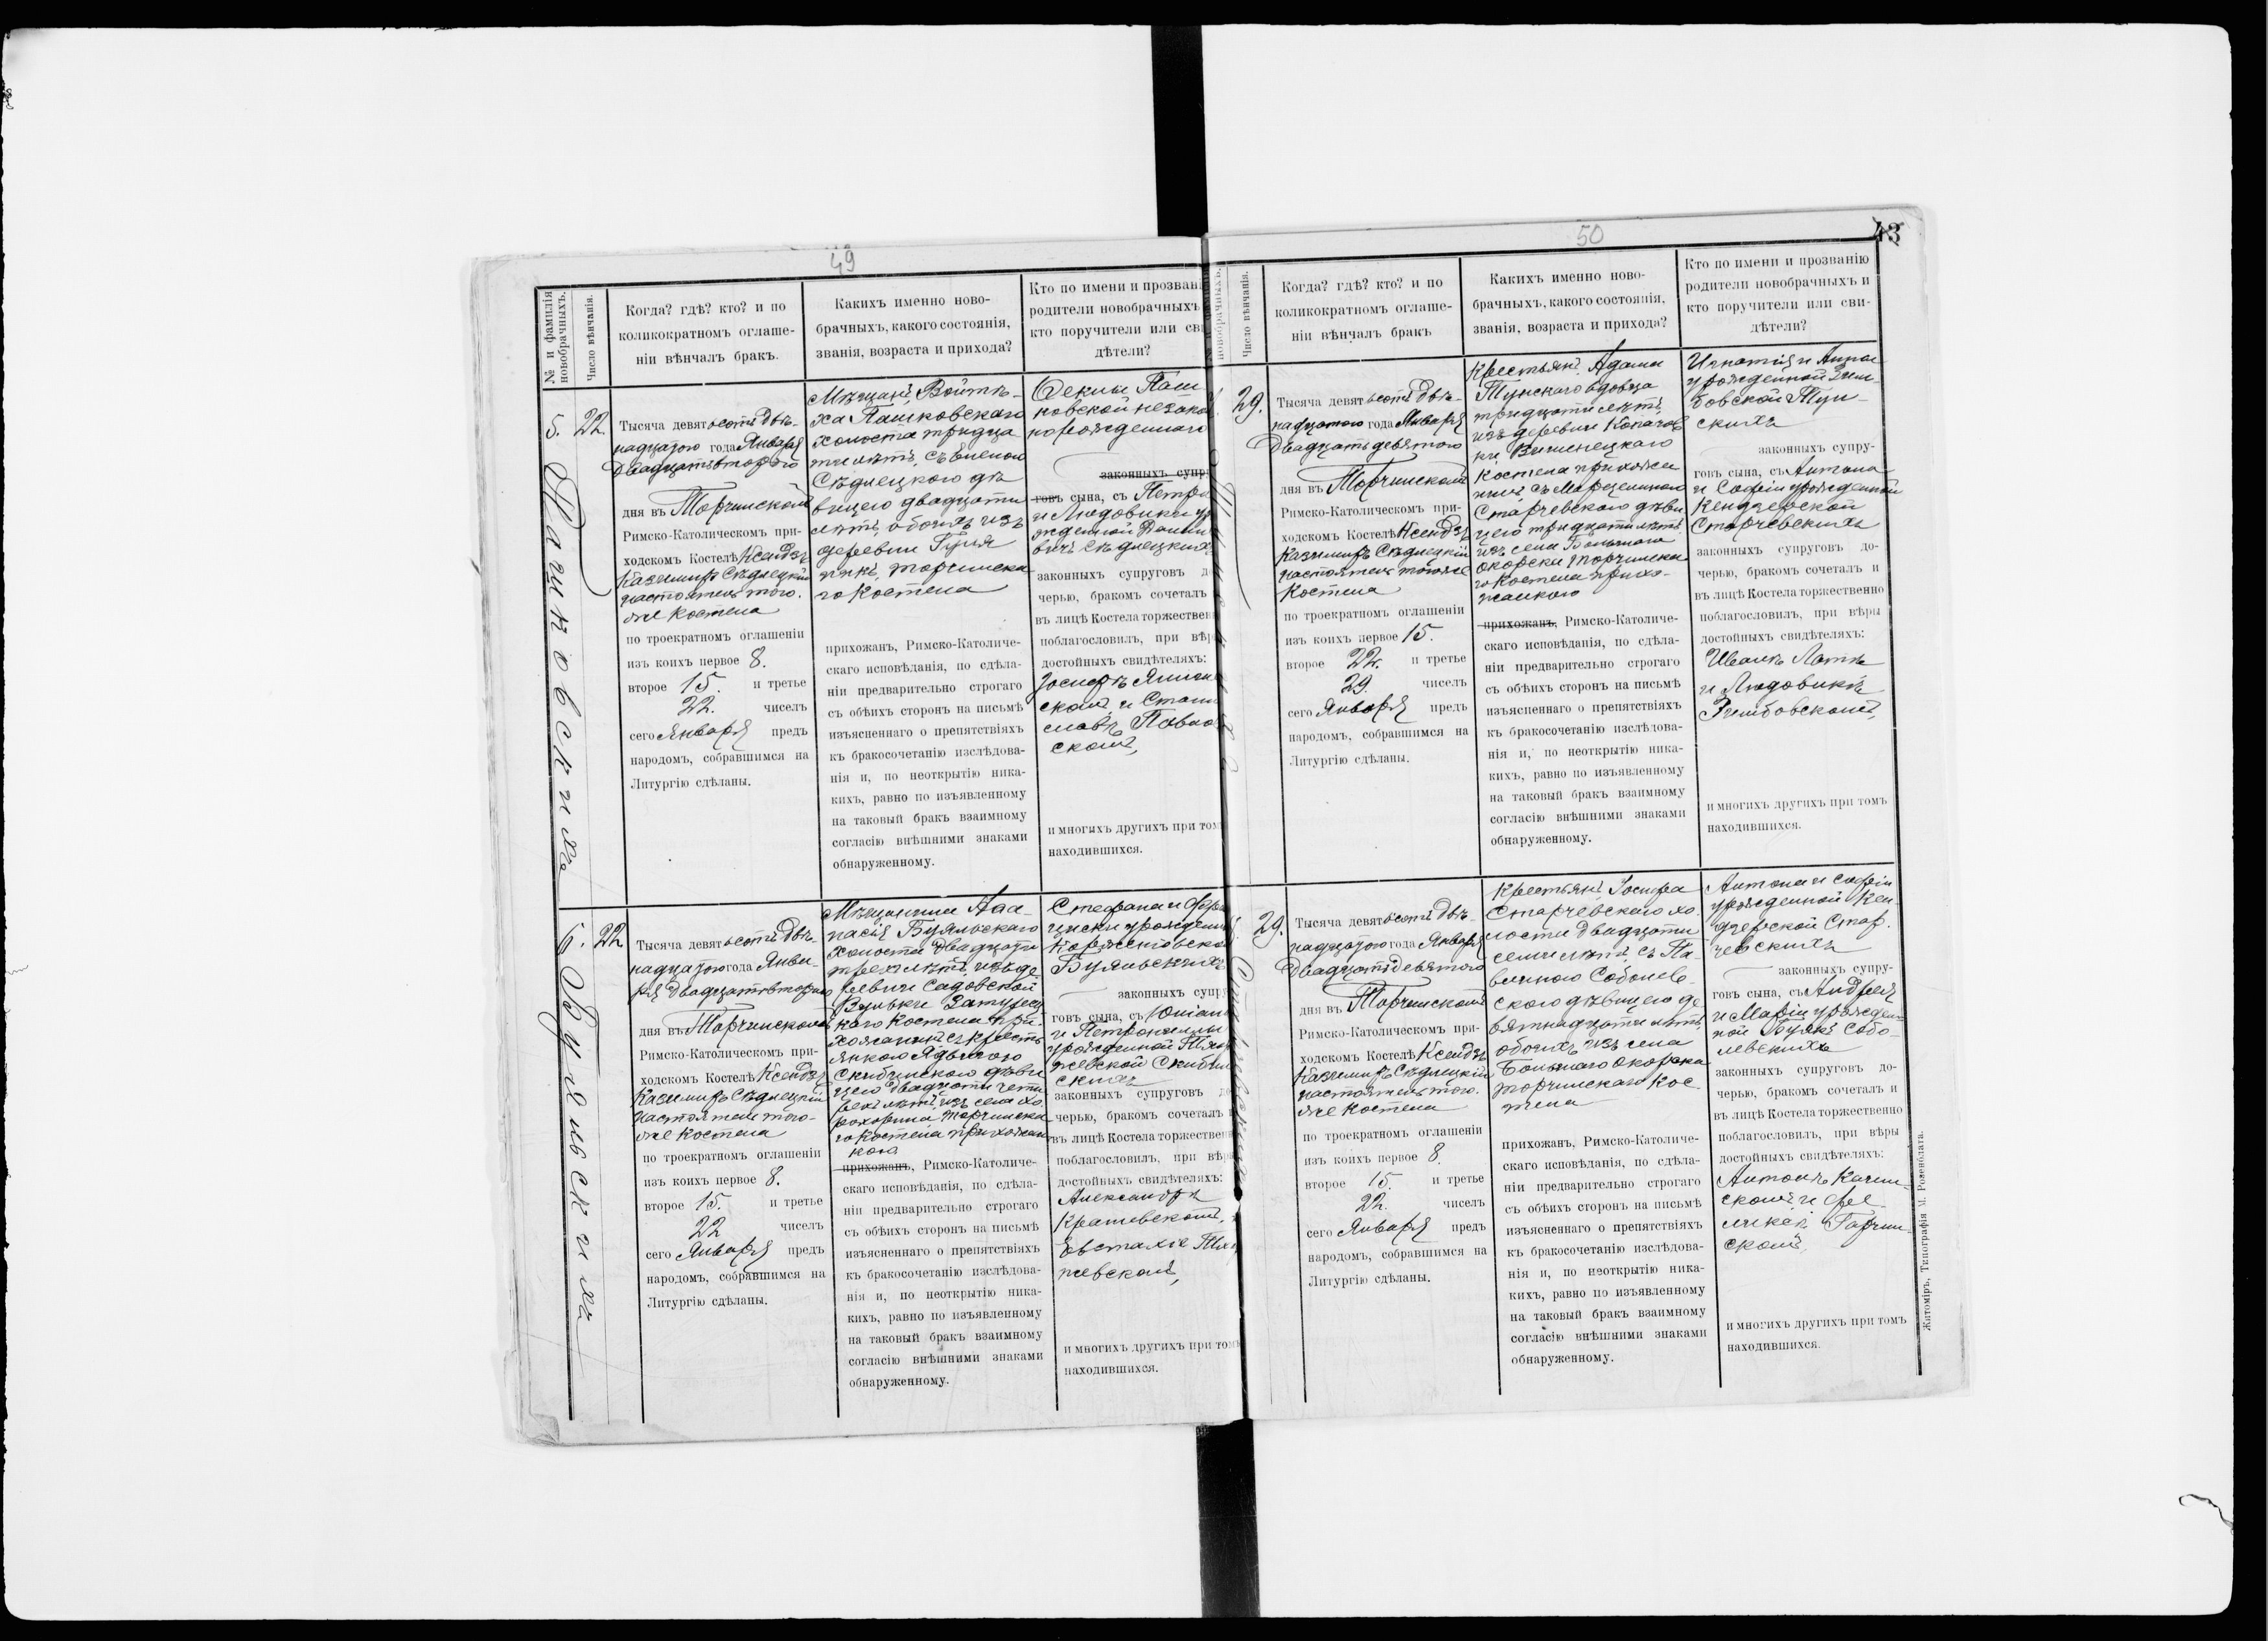 49
№ и фамилія новобрачныхъ.
Число вѣнчанія.
Когда? гдѣ? кто? и по
коликократномъ оглаше-
ніи вѣнчалъ бракъ.
Какихъ именно ново-
брачныхъ, какого состоянія,
званія, возраста и прихода?
Кто по имени и прозвані
родители новобрачныхъ
кто поручители или сви
дѣтели?
5.
22.
Тысяча девятьсотъ двѣ-
надцатого года Января
двадцать второго
дня въ Торчинскомъ
Римско-Католическомъ при-
ходскомъ Костелѣ Ксендзъ
Казимиръ Сѣдлецкій
настоятель того-
же костела
по троекратномъ оглашеніи
изъ коихъ первое 8.
второе 15. и третье
22. чиселъ
сего Января предъ
народомъ, собравшимся на
Литургію сдѣланы.
Мѣщанинъ Войтѣ-
ха Пашковскаго
холоста тридца
ти лѣтъ, съ Еленой
Сѣдлецкого дѣ
вицею двадцати
лѣтъ, обоихъ изъ
деревни
торчинска
го костела
прихожанъ, Римско-Католиче-
скаго исповѣданія, по сдѣла-
ніи предварительно строгаго
съ обѣихъ сторонъ на письмѣ
изъясненнаго о препятствіяхъ
къ бракосочетанію изслѣдова-
нія и, по неоткрытію ника-
кихъ, равно по изъявленному
на таковый бракъ взаимному
согласію внѣшними знаками
обнаруженному.
Феклы Паш
ковской незако
норожденнаго
законныхъ супр
говъ сына, съ Петра
и Людовики ур
жденной
Сѣдлецкихъ
законныхъ супруговъ д
черью, бракомъ сочеталъ
въ лицѣ Костела торжествен
поблагословилъ, при вѣр
достойныхъ свидѣтеляхъ:
Іосифъ
скомъ и Стани
славъ
скомъ,
и многихъ другихъ при том
находившихся.
6.
22
Буяльскихъ
Тысяча девятьсотъ двѣ-
надцатого года Янва-
ря двадцать второго
дня въ Торчинскомъ
Римско-Католическомъ при-
ходскомъ Костелѣ Ксендзъ
Казимиръ Сѣдлецкій
настоятель того-
же костела
по троекратномъ оглашеніи
изъ коихъ первое 8.
второе 15. и третье
22 чиселъ
сего Января предъ
народомъ, собравшимся на
Литургію сдѣланы.
Мѣщанина Ада-
Буяльскаго
холоста двадцати
трехъ лѣтъ, изъ де
ревни Садовской
Вульки Затурец
каго костела при-
хожанинъ съ кресть
янкою Ядвигою
Скибинскою дѣви
цею двадцати четы
рехъ лѣтъ, изъ села Хо
рохорина торчинска
го костела прихожан
кою
прихожанъ, Римско-Католиче-
скаго исповѣданія, по сдѣла-
ніи предварительно строгаго
съ обѣихъ сторонъ на письмѣ
изъясненнаго о препятствіяхъ
къ бракосочетанію изслѣдова-
нія и, по неоткрытію ника-
кихъ, равно по изъявленному
на таковый бракъ взаимному
согласію внѣшними знаками
обнаруженному.
Стефана и Фран
циски урожденн
Буяльскихъ
законныхъ супр
говъ сына, съ Юліан
и Петронелли
урожденной
Скибин
скихъ
законныхъ супруговъ до
черью, бракомъ сочеталъ
въ лицѣ Костела торжествен
поблагословилъ, при вѣр
достойныхъ свидѣтеляхъ:
Александръ
Евстахіе
жевскомъ,
и многихъ другихъ при томъ
находившихся.
50
43
новобрачныхъ.
Число вѣнчанія.
Когда? гдѣ? кто? и по
коликократномъ оглаше-
ніи вѣнчалъ бракъ
Какихъ именно ново-
брачныхъ, какого состоянія,
званія, возраста и прихода?
Кто по имени и прозванію
родители новобрачныхъ и
кто поручители или сви-
дѣтели?
29.
Тысяча девятьсотъ двѣ-
надцатого года Января
двадцать девятого
дня въ Торчинскомъ
Римско-Католическомъ при-
ходскомъ Костелѣ Ксендзъ
Казимиръ Сѣдлецкій
настоятель тогоже
костела
по троекратномъ оглашеніи
изъ коихъ первое 15.
второе 22. и третье
29. чиселъ
сего Января предъ
народомъ, собравшимся на
Литургію сдѣланы.
Крестьян. Адама
вдовца
тридцати лѣтъ,
изъ деревни Копачов
ки
костела прихожа
нинъ съ Марцелиною
Старчевскаго дѣви
цею тридцати лѣтъ
изъ села Большого
Окорска торчинска
го костела прихо-
жанкою
прихожанъ, Римско-Католиче-
скаго исповѣданія, по сдѣла-
ніи предварительно строгаго
съ обѣихъ сторонъ на письмѣ
изъясненнаго о препятствіяхъ
къ бракосочетанію изслѣдова-
нія и, по неоткрытію ника-
кихъ, равно по изъявленному
на таковый бракъ взаимному
согласію внѣшними знаками
обнаруженному.
Игнатія и Анны
урожденной Зем-
бовской
скихъ
законныхъ супру-
говъ сына, съ Антона
и Софіи урожденной
Кендзерской
Старчевскихъ
законныхъ супруговъ до-
черью, бракомъ сочеталъ и
въ лицѣ Костела торжественно
поблагословилъ, при вѣры
достойныхъ свидѣтеляхъ:
Иванъ
и Людовикъ
Зембовскомъ,
и многихъ другихъ при томъ
находившихся.
29.
Тысяча девятьсотъ двѣ-
надцатого года Января
двадцать девятого
дня въ Торчинскомъ
Римско-Католическомъ при-
ходскомъ Костелѣ Ксендзъ
Казимиръ Сѣдлецкій
настоятель того-
же костела
по троекратномъ оглашеніи
изъ коихъ первое 8.
второе 15. и третье
22. чиселъ
сего Января предъ
народомъ, собравшимся на
Литургію сдѣланы.
Крестьян. Іосифа
Старчевскаго хо
лоста двадцати
семи лѣтъ, съ Па-
влиною Соболев-
скаго дѣвицею де
вятнадцати лѣтъ,
обоихъ изъ села
Большаго Окорска
торчинскаго кос
тела
прихожанъ, Римско-Католиче-
скаго исповѣданія, по сдѣла-
ніи предварительно строгаго
съ обѣихъ сторонъ на письмѣ
изъясненнаго о препятствіяхъ
къ бракосочетанію изслѣдова-
нія и, по неоткрытію ника-
кихъ, равно по изъявленному
на таковый бракъ взаимному
согласію внѣшними знаками
обнаруженному.
Антона и Софіи
урожденной Кен
дзерской Стар-
чевскихъ
законныхъ супру-
говъ сына, съ Андрея
и Маріи урожден-
ной Буякъ Собо
левскихъ
законныхъ супруговъ до-
черью, бракомъ сочеталъ и
въ лицѣ Костела торжественно
поблагословилъ, при вѣры
достойныхъ свидѣтеляхъ:
Антонъ
скомъ и Фе
скомъ,
и многихъ другихъ при томъ
находившихся.
Житоміръ, Типографія М. Розенблата.